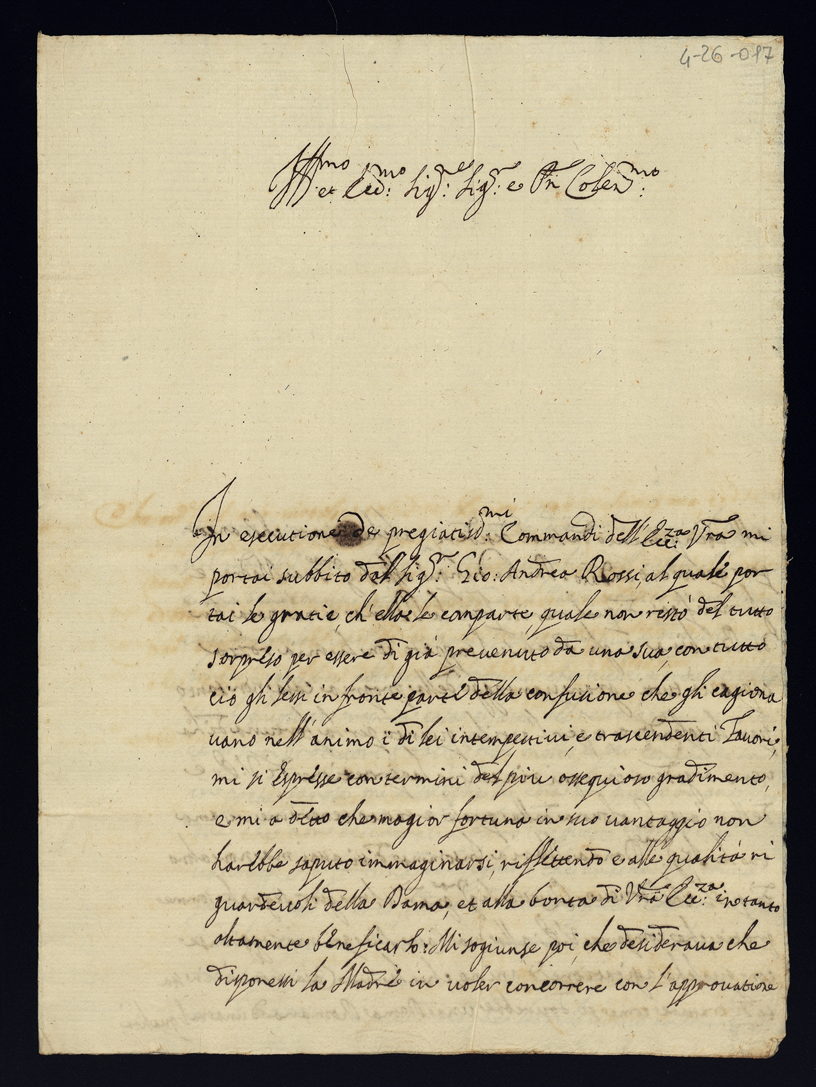 4-26-017
Ill.mo et Ecc.mo Sig.r Sig.r e Pn Colen.mo
In esecutione de pregiatiss.mi Commandi dell'Ecc.za Vra mi
portai subbito dal Sig.r Gio: Andrea Rossi, al quale por
tai le gratie, ch'ella le comparte, quale non restò del tutto
sorpreso per essere di già preuenuto da una sua, con tutto
ciò gli lessi in fronte parte della confusione che gli cagiona
uano nell'animo i di lei intempestiui, e trascendenti Fauori,
mi si espresse con termini del più ossequioso gradimento,
e mi a detto che magior fortuna in suo uantaggio non
harebbe saputo immaginarsi, riflettendo e alle qualità ri
guardeuoli della Dama, et alla bontà di Vra Ecc.za in tanto
altamente beneficarlo: Mi sogiunse poi, che desideraua che
disponessi la Madre in uoler concorrere con l'approuatione